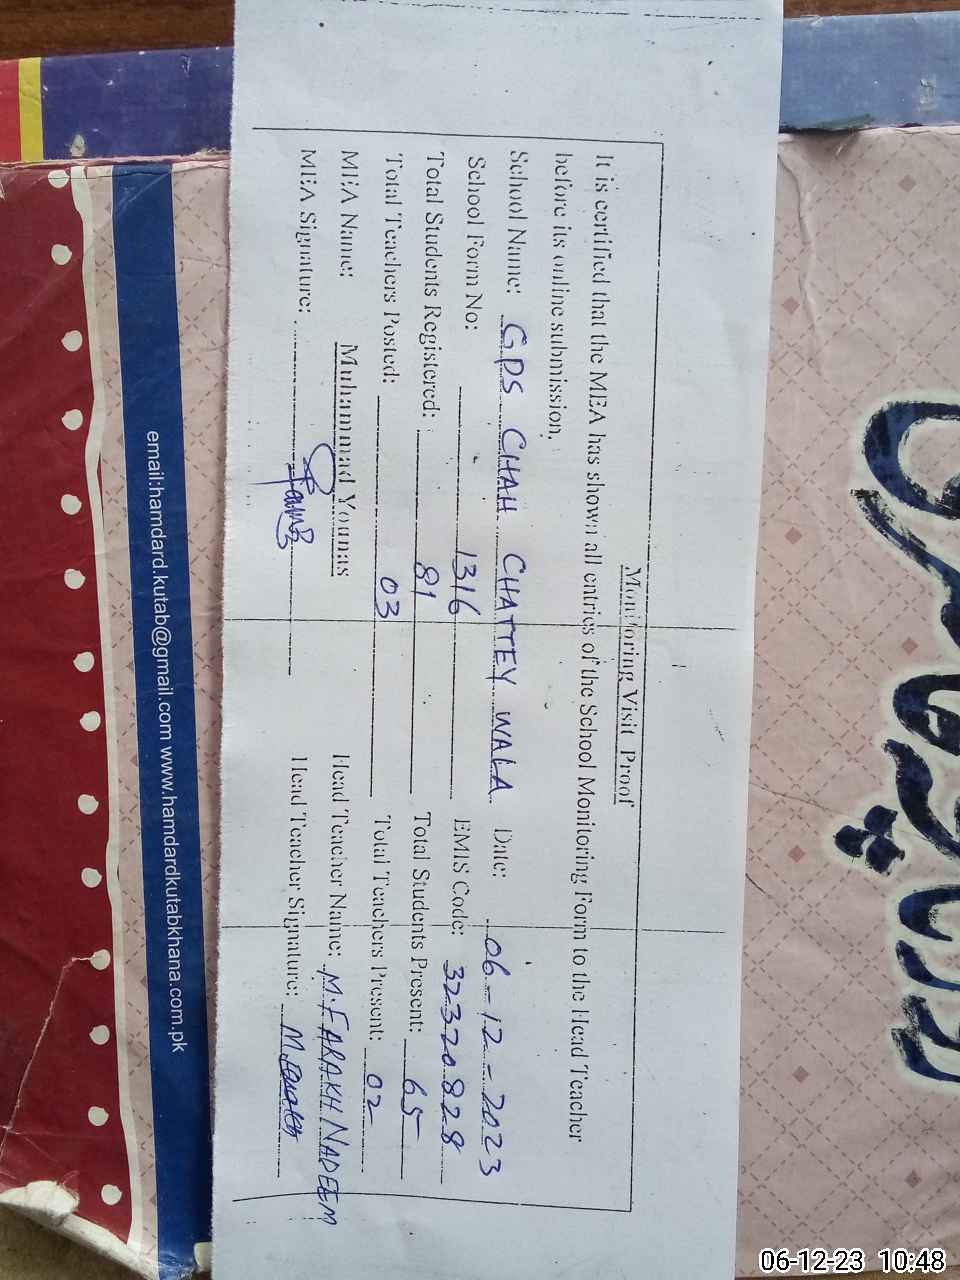 Monitoring Visit Proof
It is certified that the MEA has shown all entries of the School Monitoring Form to the Head Teacher
before its online submission.
School Name: GPS CHAH CHATTEY WALA Date: 06-12-2023
School Form No: 1316 EMIS Code: 32320828
Total Students Registered: 81 Total Students Present: 65
Total Teachers Posted: 03 Total Teachers Present: 02
MEA Name: Muhammad Younas Head Teacher Name: M.FARAKH NADEEM
MEA Signature: Head Teacher Signature:
email:hamdard.kutab@gmail.com www.hamdardkutabkhana.com.pk
06-12-23 10:48